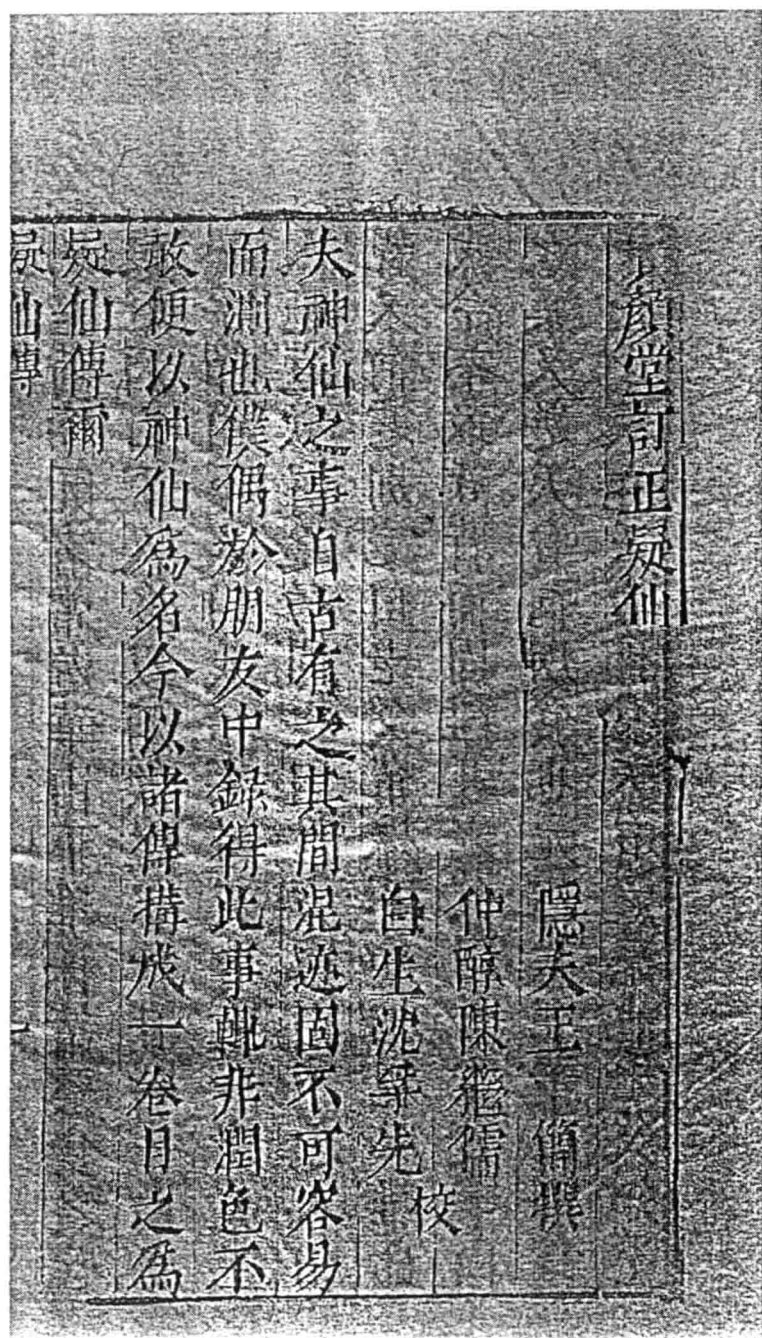 顏堂訂正疑仙
隱夫王　簡撰
仲醇陳繼儒
白生沈孚先
校
夫神仙之事自古有之其間混迹固不可容易
而測也僕偶於朋友中録得此事輒非潤色不
敢便以神仙爲名今以諸傳搆成一卷目之爲
疑仙傳爾
疑仙傳　一